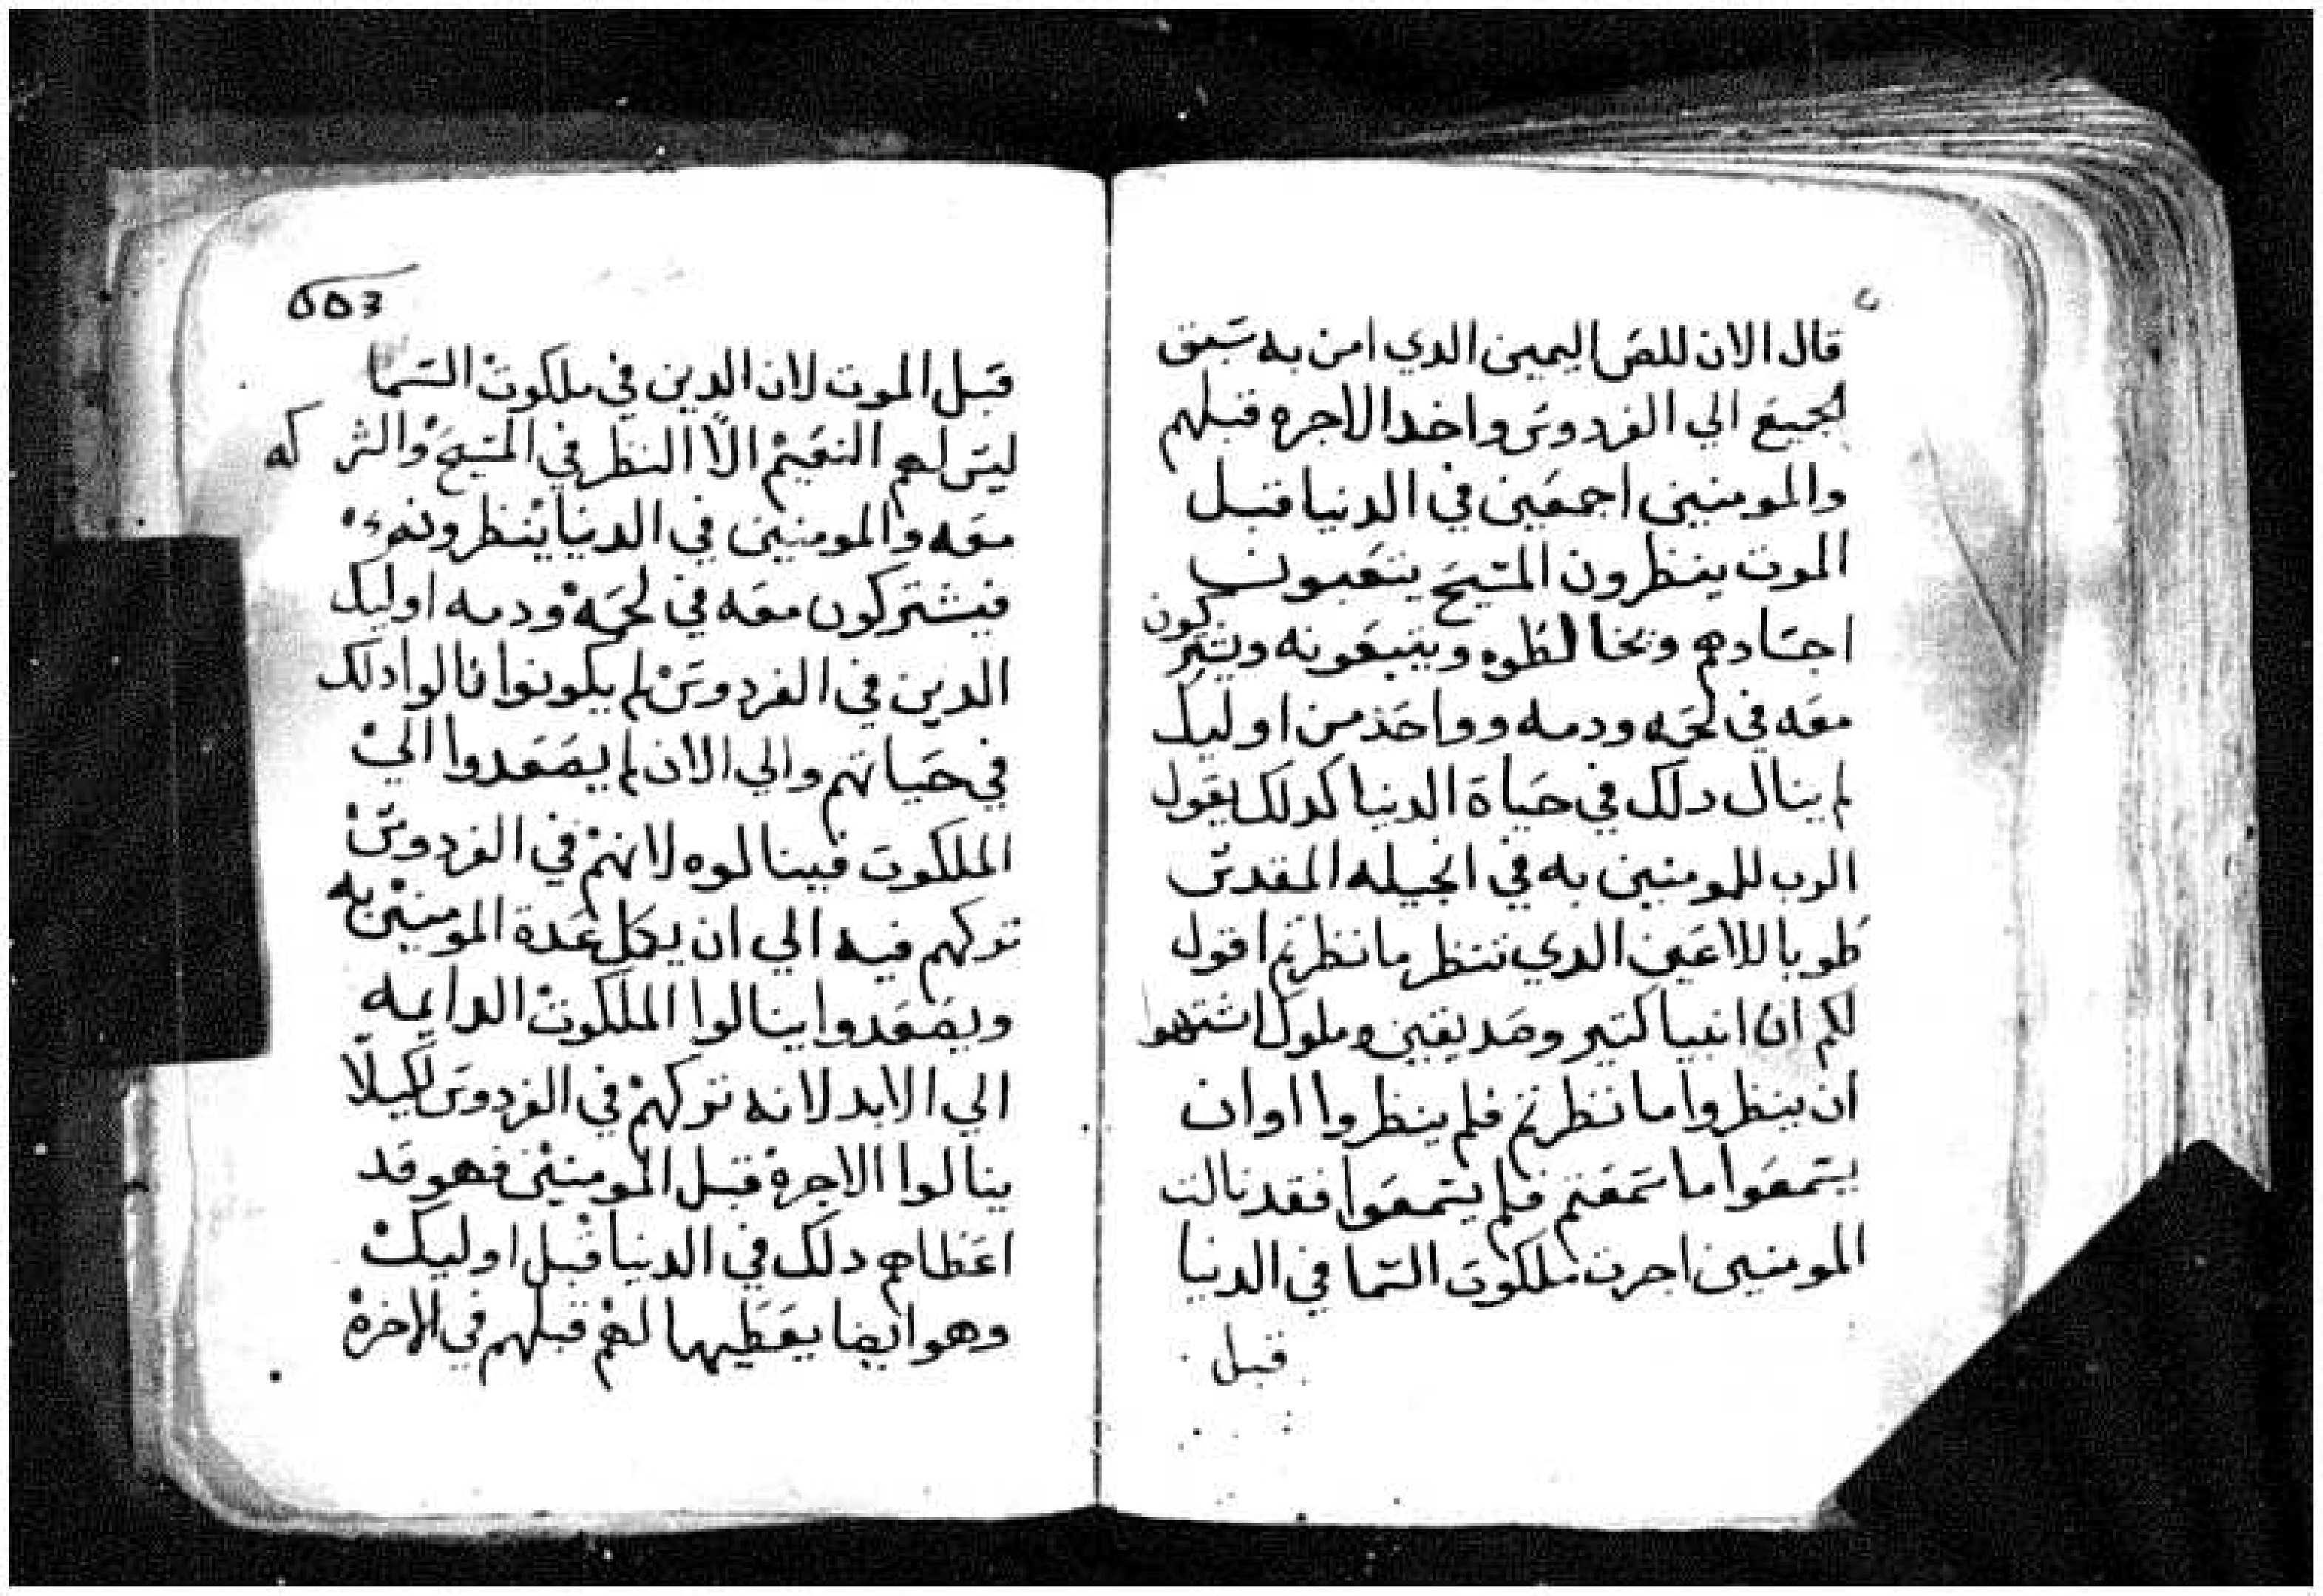 قال الان للص اليمين الدي امن به سبق
الجميع الي الفردوس واخد الاجره قبلهم
والمومنين اجمعين في الدنيا قبل
الموت ينظرون المسيح يتعبون
اجسادهم وتخالطوه ويتبعونه ويشتركون
معه في لحمه ودمه وواحد من اوليك
لم ينال دلك في حياة الدنيا كدلك يقول
الرب للمومنين به في انجيله المقدس
طوبا للاعين الدي تنظر ما نظرتم اقول
لكم ان انبيا كتير وصديقين وملوك اشتهوا
ان ينظروا ما نظرتم فلم ينظروا اوان
يسمعوا ما سمعتم فلم يسمعوا فقد نالت
المومنين اجرت ملكوت السما في الدنيا
قبل
قبل الموت لان الدين في ملكوت السما
ليس لهم النعيم الا النظر في المسيح والشركه
معه والمومنين في الدنيا ينظرونه
فيشتركون معه في لحمه ودمه اوليك
الدين في الفردوس لم يكونوا نالوا دلك
في حياتهم والي الان لم يصعدوا الي
الملكوت فينالوه لانهم في الفردوس
تركهم فيه الي ان يكمل عدة المومنين به
ويصعدوا ينالوا الملكوت الدايمه
الي الابد لانه تركهم في الفردوس لكيلا
ينالوا الاجره قبل المومنين فهو قد
اعطاهم دلك في الدنيا قبل اوليك
وهو ايضا يعطيها لهم قبلهم في الاخرة